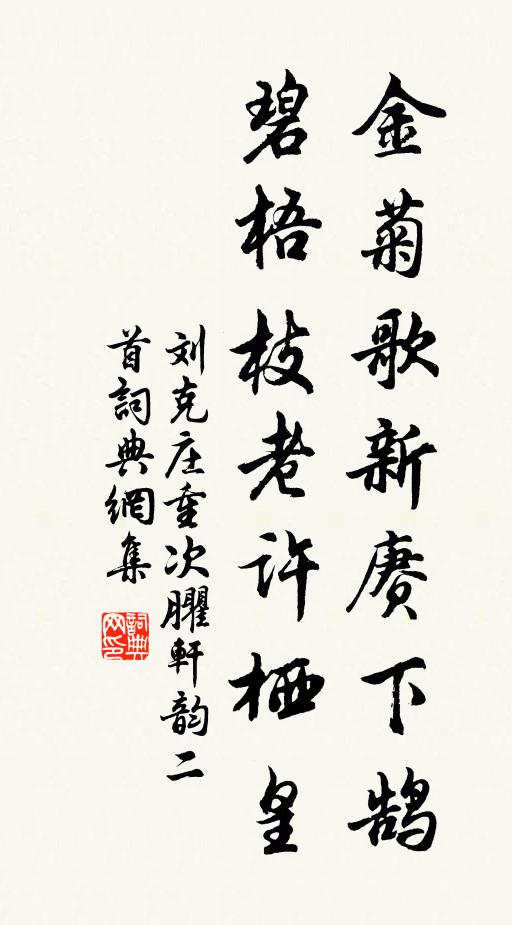 金菊歌新赓下鹄
碧梧枝老许栖皇
刘克庄重次臞軒韵二
首詞典網集
詞典网印